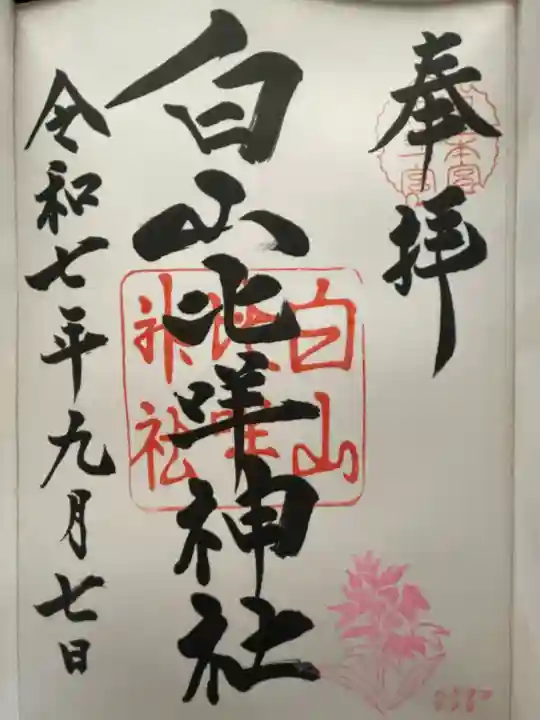 奉拝
白山比咩神社
令和七年九月七日
白山
比咩
神社